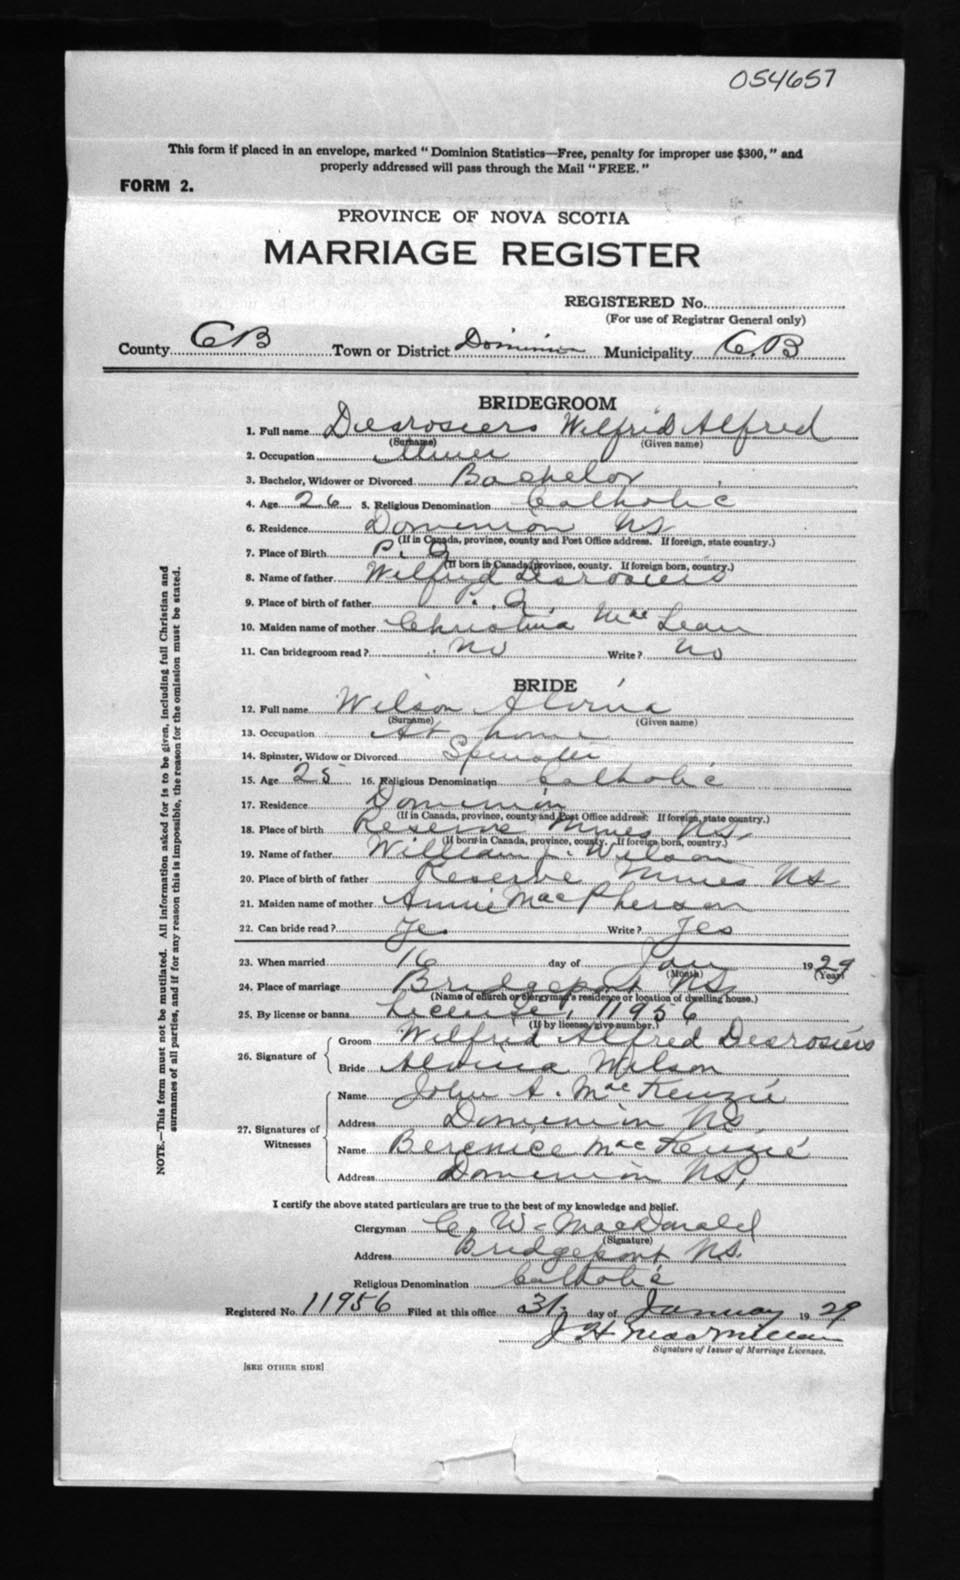 054657
This form if placed in an envelope, marked "Dominion Statistics—Free, penalty for improper use $300," and
properly addressed will pass through the Mail "FREE."
FORM 2.
PROVINCE OF NOVA SCOTIA
MARRIAGE REGISTER
REGISTERED No.
(For use of Registrar General only)
County CB Town or District Dominion Municipality C.B
BRIDEGROOM
1. Full name Desrosiers Wilfrid Alfred
(Surname) (Given name)
2. Occupation Miner
3. Bachelor, Widower or Divorced Bachelor
4. Age 26 5. Religious Denomination Catholic
6. Residence Dominion NS
(If in Canada, province, county and Post Office address. If foreign, state country.)
7. Place of Birth P. Q
(If born in Canada, province, county. If foreign born, country.)
8. Name of father Wilfryd Desrosiers
9. Place of birth of father P. Q.
10. Maiden name of mother Christina MacLean
11. Can bridegroom read? No Write? No
BRIDE
12. Full name Wilson Alvina
(Surname) (Given name)
13. Occupation At home
14. Spinster, Widow or Divorced Spinster
15. Age 25 16. Religious Denomination Catholic
17. Residence Dominion
(If in Canada, province, county and Post Office address: If foreign, state country.)
18. Place of birth Reserve Mines NS
(If born in Canada, province, county. If foreign born, country.)
19. Name of father William J. Wilson
20. Place of birth of father Reserve Mines NS
21. Maiden name of mother Annie MacPherson
22. Can bride read? Yes Write? Yes
23. When married 16 day of Jan 1929
(Month) (Year)
24. Place of marriage Bridgeport NS
(Name of church or clergyman's residence or location of dwelling house.)
25. By license or banns License, 11956
(If by license, give number.)
26. Signature of { Groom Wilfrid Alfred Desrosiers
Bride Alvina Wilson
27. Signatures of Witnesses { Name John A. MacKenzie
Address Dominion NS,
Name Berenice MacKenzie
Address Dominion NS,
I certify the above stated particulars are true to the best of my knowledge and belief.
Clergyman C. W. MacDonald
(Signature)
Address Bridgeport NS.
Religious Denomination Catholic
Registered No. 11956 Filed at this office 31 day of January 1929
J H MacMillan
Signature of Issuer of Marriage Licenses.
[SEE OTHER SIDE]
NOTE.—This form must not be mutilated. All information asked for is to be given, including full Christian and
surnames of all parties, and if for any reason this is impossible, the reason for the omission must be stated.